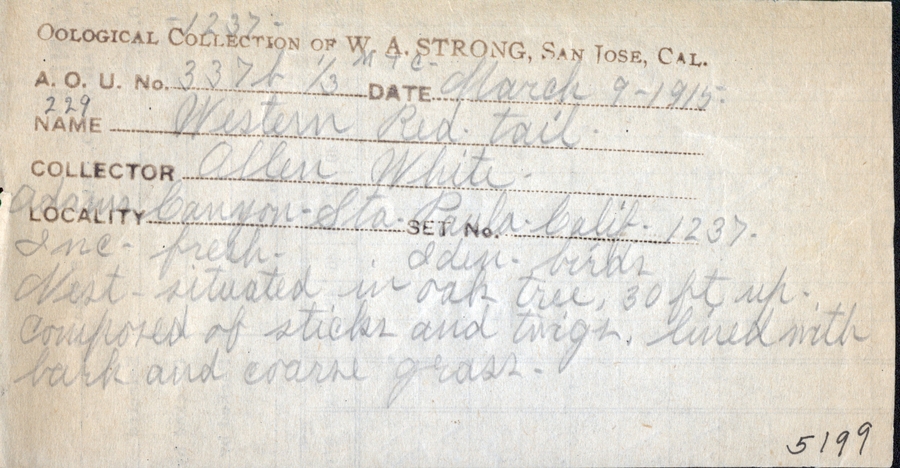 -1237-
OOLOGICAL COLLECTION OF W. A. STRONG, SAN JOSE, CAL.
A. O. U. No. 337b 1/3 DATE March 9-1915-
229
NAME Western Red. tail.
COLLECTOR Allen White.
LOCALITY Adams Canyon. Sta. Paula. Calif. SET No. 1237.
Inc- fresh. Iden- birds
Nest- situated in oak tree, 30 ft up.
composed of sticks and twigs. lined with
bark and coarse grass.
5199